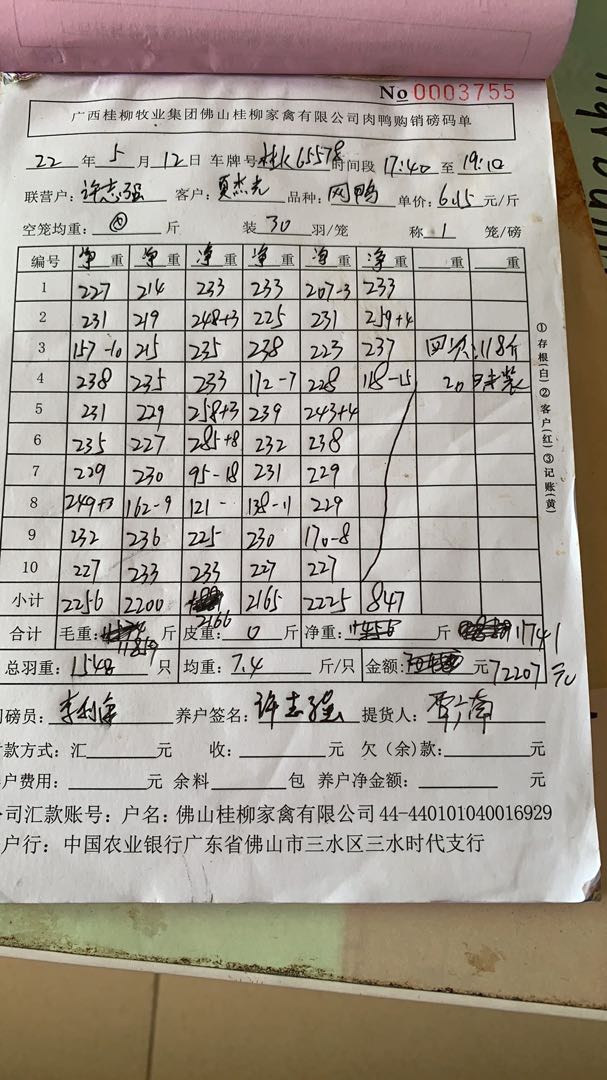 No 0003755
广西桂柳牧业集团佛山桂柳家禽有限公司肉鸭购销磅码单
22 年 5 月 12 日 车牌号 桂K65578 时间段 17:40 至 19:10
联营户: 许志强 客户: 夏杰光 品种: 网鸭 单价: 6.15 元/斤
空笼均重: 斤 装 30 羽/笼 称 1 笼/磅
编号 净重 净重 净重 净重 净重 净重 重 重
1 227 214 233 233 207-3 233
2 231 219 248+3 225 231 259+4
3 157-10 215 235 238 223 237 118斤
4 238 235 233 172-7 228 118-15 20 未装
5 231 229 258+3 239 243+4
6 235 227 285+8 232 238
7 229 230 95-18 231 229
8 249+3 162-9 121- 138-11 229
9 232 236 225 230 170-8
10 227 233 233 227 227
小计 2256 2200 2166 2165 2225 847
合计 毛重: 11859 斤 皮重: 0 斤 净重: 斤 11741
总羽重: 1548 只 均重: 7.4 斤/只 金额: 元 72207元
磅员: 养户签名: 许志强 提货人:
款方式: 汇 元 收: 元 欠(余)款: 元
户费用: 元 余料 包 养户净金额: 元
司汇款账号: 户名: 佛山桂柳家禽有限公司 44-440101040016929
户行: 中国农业银行广东省佛山市三水区三水时代支行
①存根(白)②客户(红)③记账(黄)